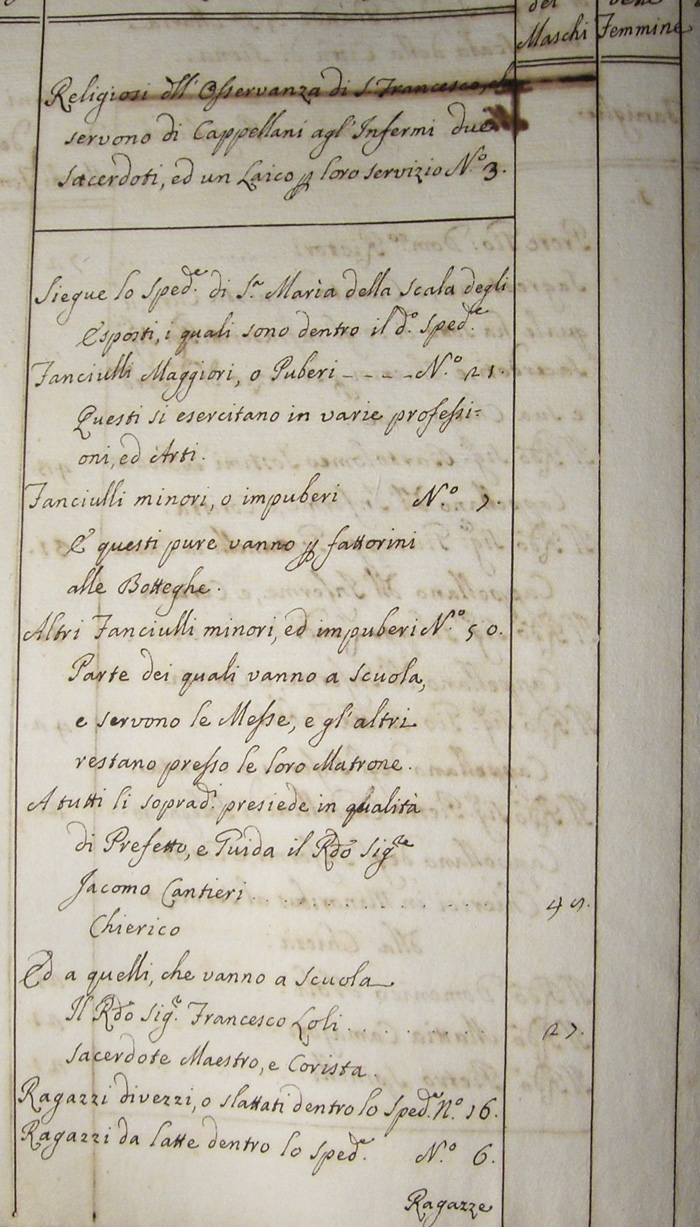 dei
delle
Maschi Femmine
Religiosi dll' Osservanza di S. Francesco, ch
servono di Cappellani agl' Infermi due
Sacerdoti, ed un Laico p loro servizio N.o 3.
Siegue lo Sped.e di S.a Maria della Scala degli
Esposti, i quali sono dentro il d.o Sped.e
Fanciulli Maggiori, o Puberi - - - - N.o 21.
Questi si esercitano in varie professi=
oni, ed Arti.
Fanciulli minori, o impuberi N.o 7.
E questi pure vanno p fattorini
alle Botteghe.
Altri Fanciulli minori, ed impuberi N.o 50.
Parte dei quali vanno a scuola,
e servono le Messe, e gl' altri
restano presso le loro Matrone.
A tutti li soprad.i presiede in qualità
di Prefetto, e Guida il Rdo Sig.re
Jacomo Cantieri . . . . . . . . 
Chierico
Ed a quelli, che vanno a scuola
Il Rdo Sig.r Francesco Loli . . . . . . . . 27.
Sacerdote Maestro, e Corista.
Ragazzi divezzi, o slattati dentro lo Sped.e N.o 16.
Ragazzi da latte dentro lo Sped.e N.o 6.
Ragazze